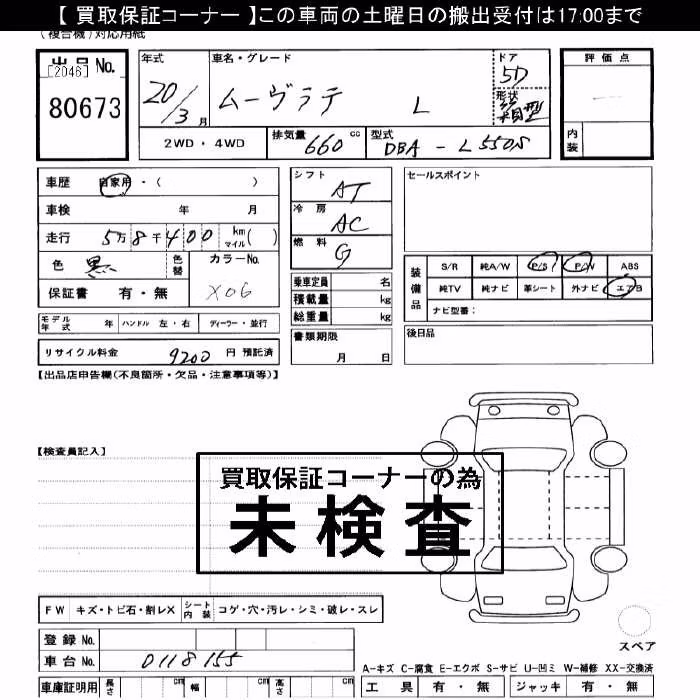 【 買取保証コーナー 】この車両の土曜日の搬出受付は17:00まで
(複合機)対応用紙
出品 No.
[2046]
80673
年式
20/3 月
車名・グレード
ムーヴラテ L
ドア
5D
形状
箱型
評価点
内装
2WD ・ 4WD
排気量 660 cc
型式 DBA - L550S
車歴 自家用 ・ ( )
車検 年 月
走行 5万8千400 km マイル ( )
色 黒 色替
カラーNo.
X06
保証書 有・無
シフト AT
冷房 AC
燃料 G
乗車定員 名
積載量 kg
総重量 kg
セールスポイント
装備品
S/R 純A/W P/S P/W ABS
純TV 純ナビ 革シート 外ナビ エアB
ナビ型番:
モデル年式 年 ハンドル 左・右 ディーラー・並行
書類期限
月 日
後日品
リサイクル料金 9200 円 預託済
【出品店申告欄(不良箇所・欠品・注意事項等)】
【検査員記入】
買取保証コーナーの為
未検査
FW キズ・トビ石・割レX シート内装 コゲ・穴・汚レ・シミ・破レ・スレ
登録 No.
車台 No. 0118155
スペア
A-キズ C-腐食 E-エクボ S-サビ U-凹ミ W-補修 XX-交換済
車庫証明用 長さ cm 幅 cm 高さ cm
工具 有・無 ジャッキ 有・無